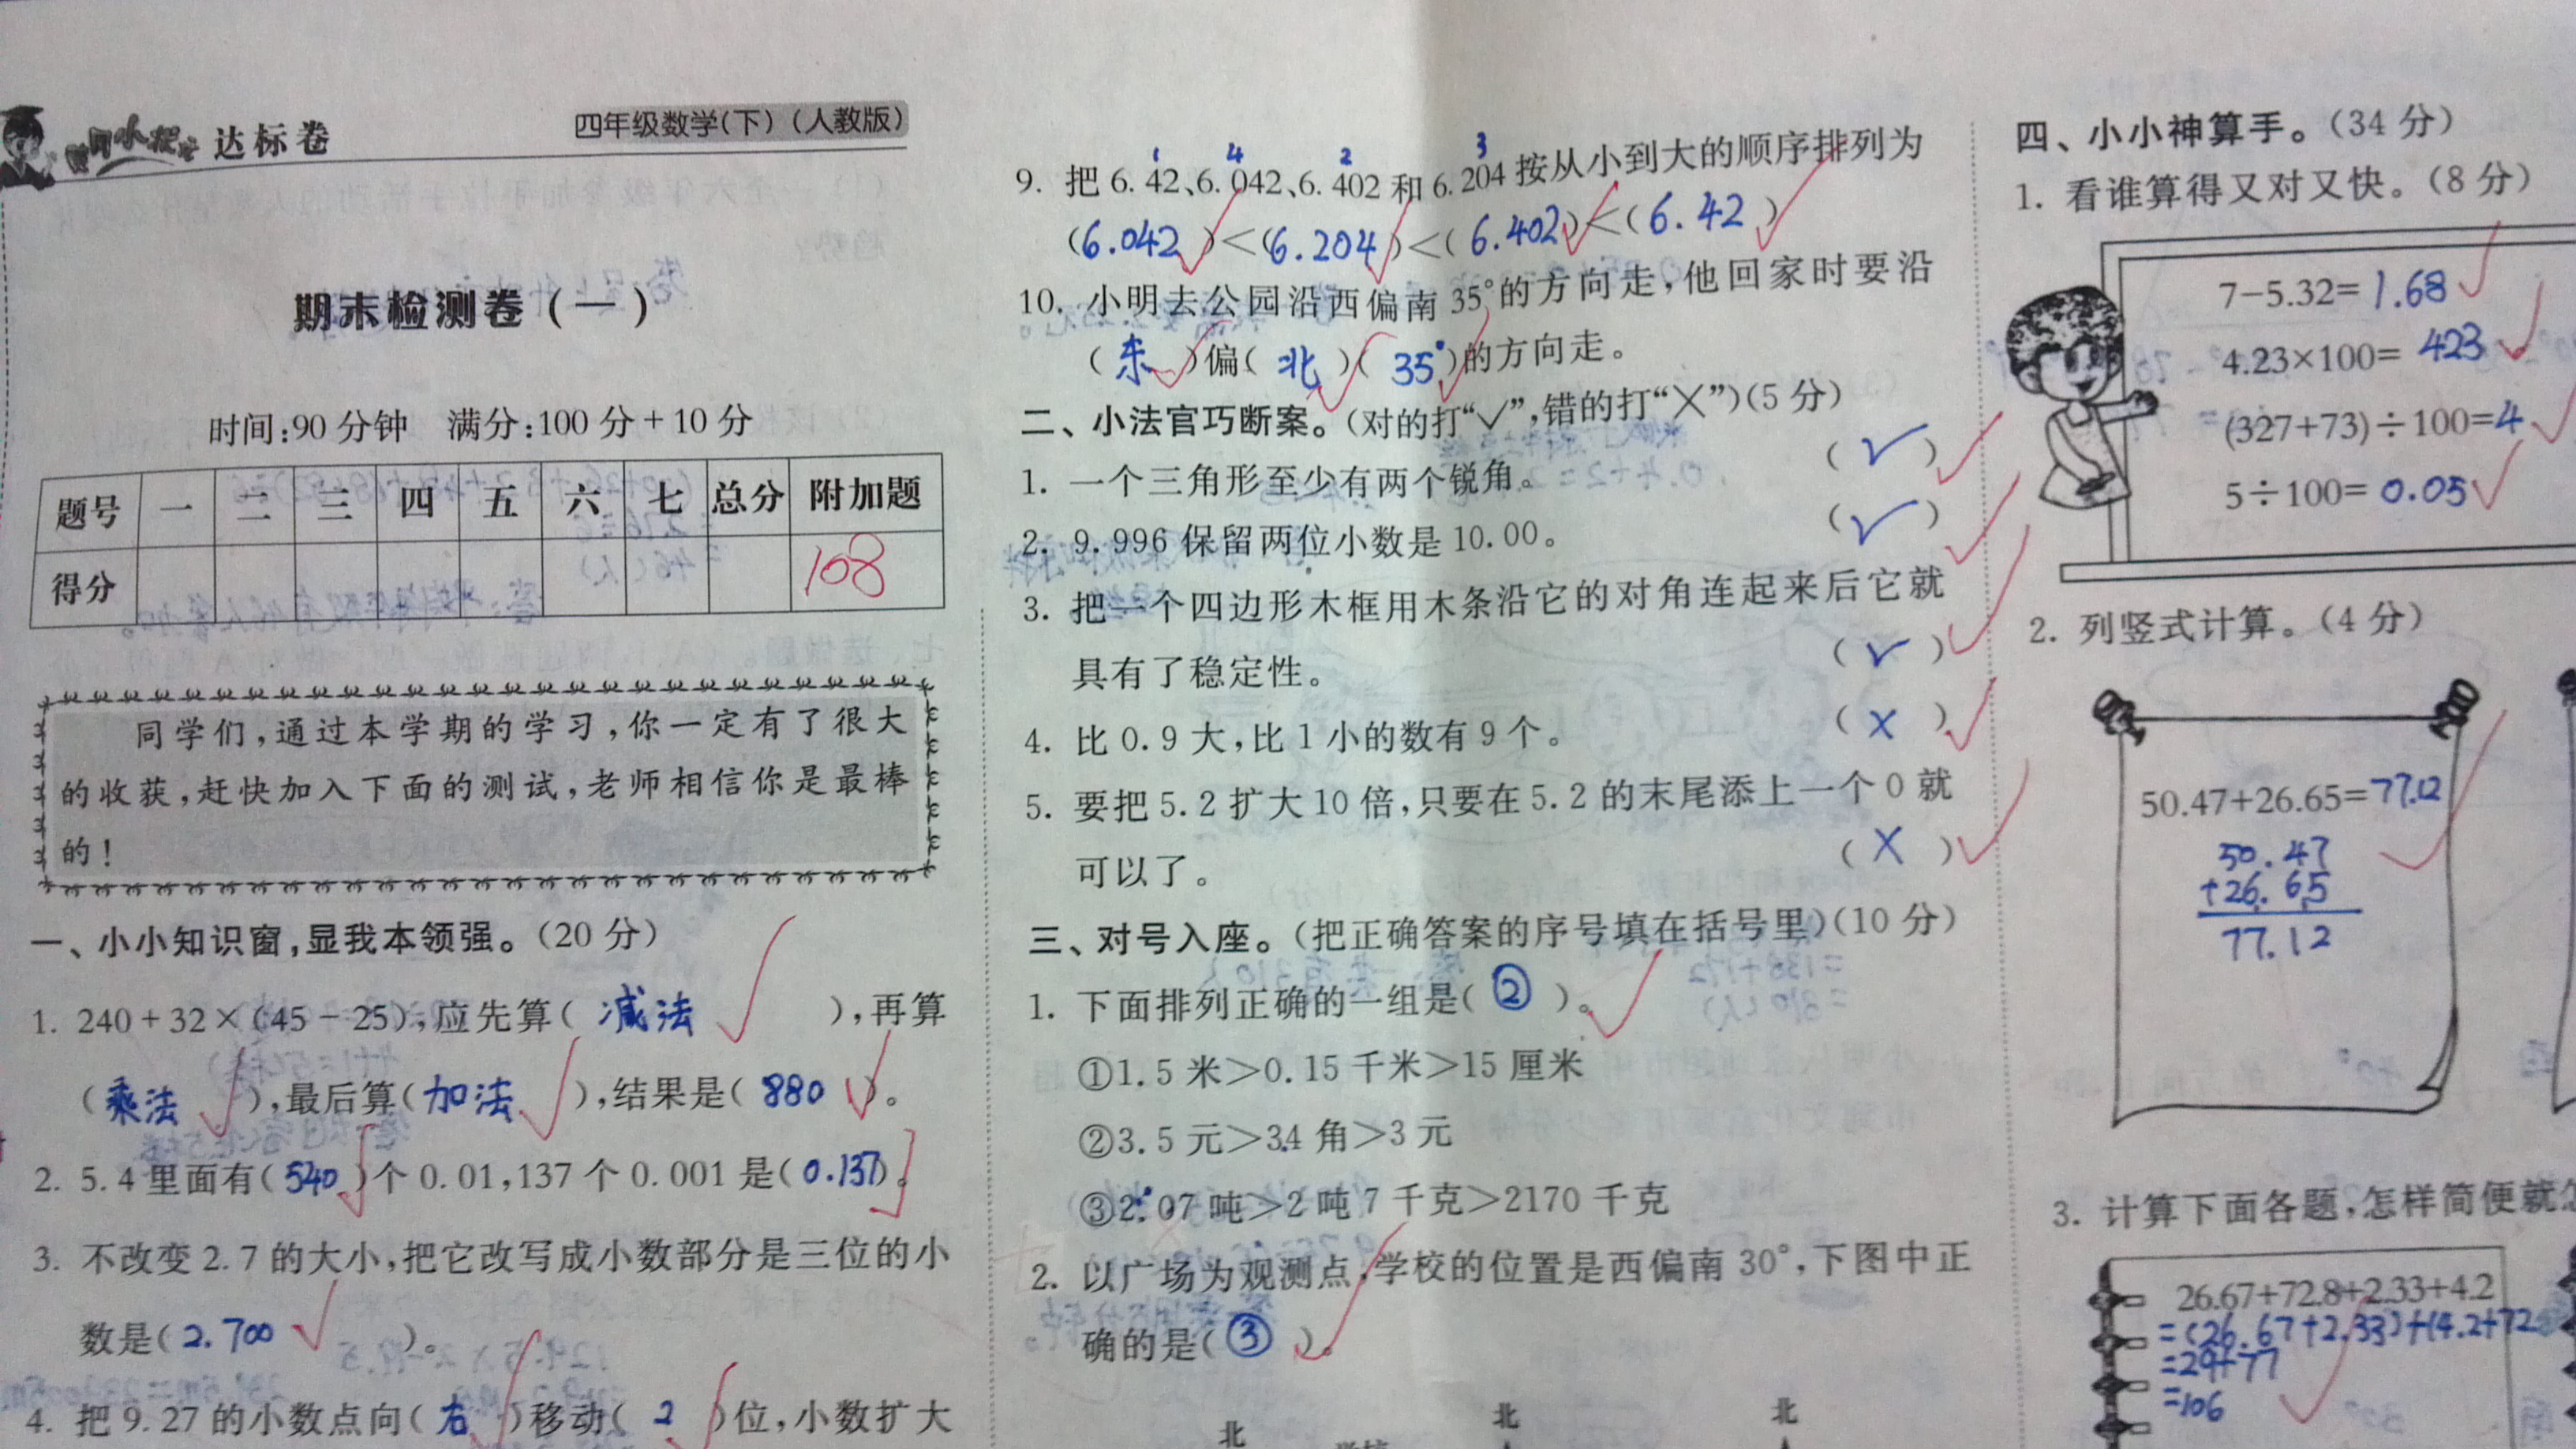 达标卷
四年级数学(下)(人教版)
期末检测卷(一)
时间:90分钟 满分:100分+10分
题号 一 二 三 四 五 六 七 总分 附加题
得分 108
同学们,通过本学期的学习,你一定有了很大
的收获,赶快加入下面的测试,老师相信你是最棒
的!
一、小小知识窗,显我本领强。(20分)
1. 240+32×(45-25),应先算(减法),再算
(乘法),最后算(加法),结果是(880)。
2. 5.4里面有(540)个0.01,137个0.001是(0.137)。
3. 不改变2.7的大小,把它改写成小数部分是三位的小
数是(2.700)。
4. 把9.27的小数点向(右)移动(2)位,小数扩大
1 4 2 3
9. 把6.42、6.042、6.402和6.204按从小到大的顺序排列为
(6.042)<(6.204)<(6.402)<(6.42)
10. 小明去公园沿西偏南35°的方向走,他回家时要沿
(东)偏(北)(35°)的方向走。
二、小法官巧断案。(对的打“✓”,错的打“╳”)(5分)
1. 一个三角形至少有两个锐角。 (✓)
2. 9.996保留两位小数是10.00。 (✓)
3. 把一个四边形木框用木条沿它的对角连起来后它就
具有了稳定性。 (✓)
4. 比0.9大,比1小的数有9个。 (×)
5. 要把5.2扩大10倍,只要在5.2的末尾添上一个0就
可以了。 (×)
三、对号入座。(把正确答案的序号填在括号里)(10分)
1. 下面排列正确的一组是(②)。
①1.5米>0.15千米>15厘米
②3.5元>34角>3元
③2.07吨>2吨7千克>2170千克
2. 以广场为观测点,学校的位置是西偏南30°,下图中正
确的是(③)。
北 北 北
四、小小神算手。(34分)
1. 看谁算得又对又快。(8分)
7-5.32=1.68
4.23×100=423
(327+73)÷100=4
5÷100=0.05
2. 列竖式计算。(4分)
50.47+26.65=77.12
50.47
+26.65
77.12
3. 计算下面各题,怎样简便就
26.67+72.8+2.33+4.2
=(26.67+2.33)+(4.2+72
=29+77
=106